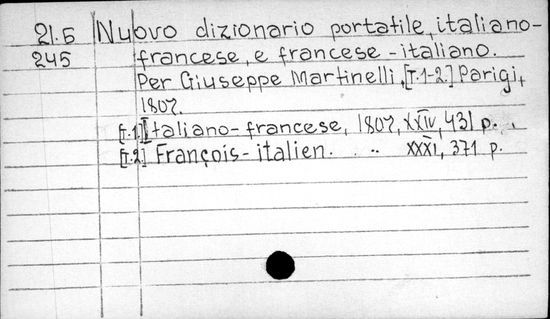 21.5 Nuovo dizionario portatile, italiano-
245 francese, e francese-italiano.
Per Giuseppe Martinelli, [T.1-2.] Parigi,
1807.
[T.1] Italiano-francese, 1807, XXIV, 431 p.
[T.2] François-italien. . .. XXXI, 371 p.